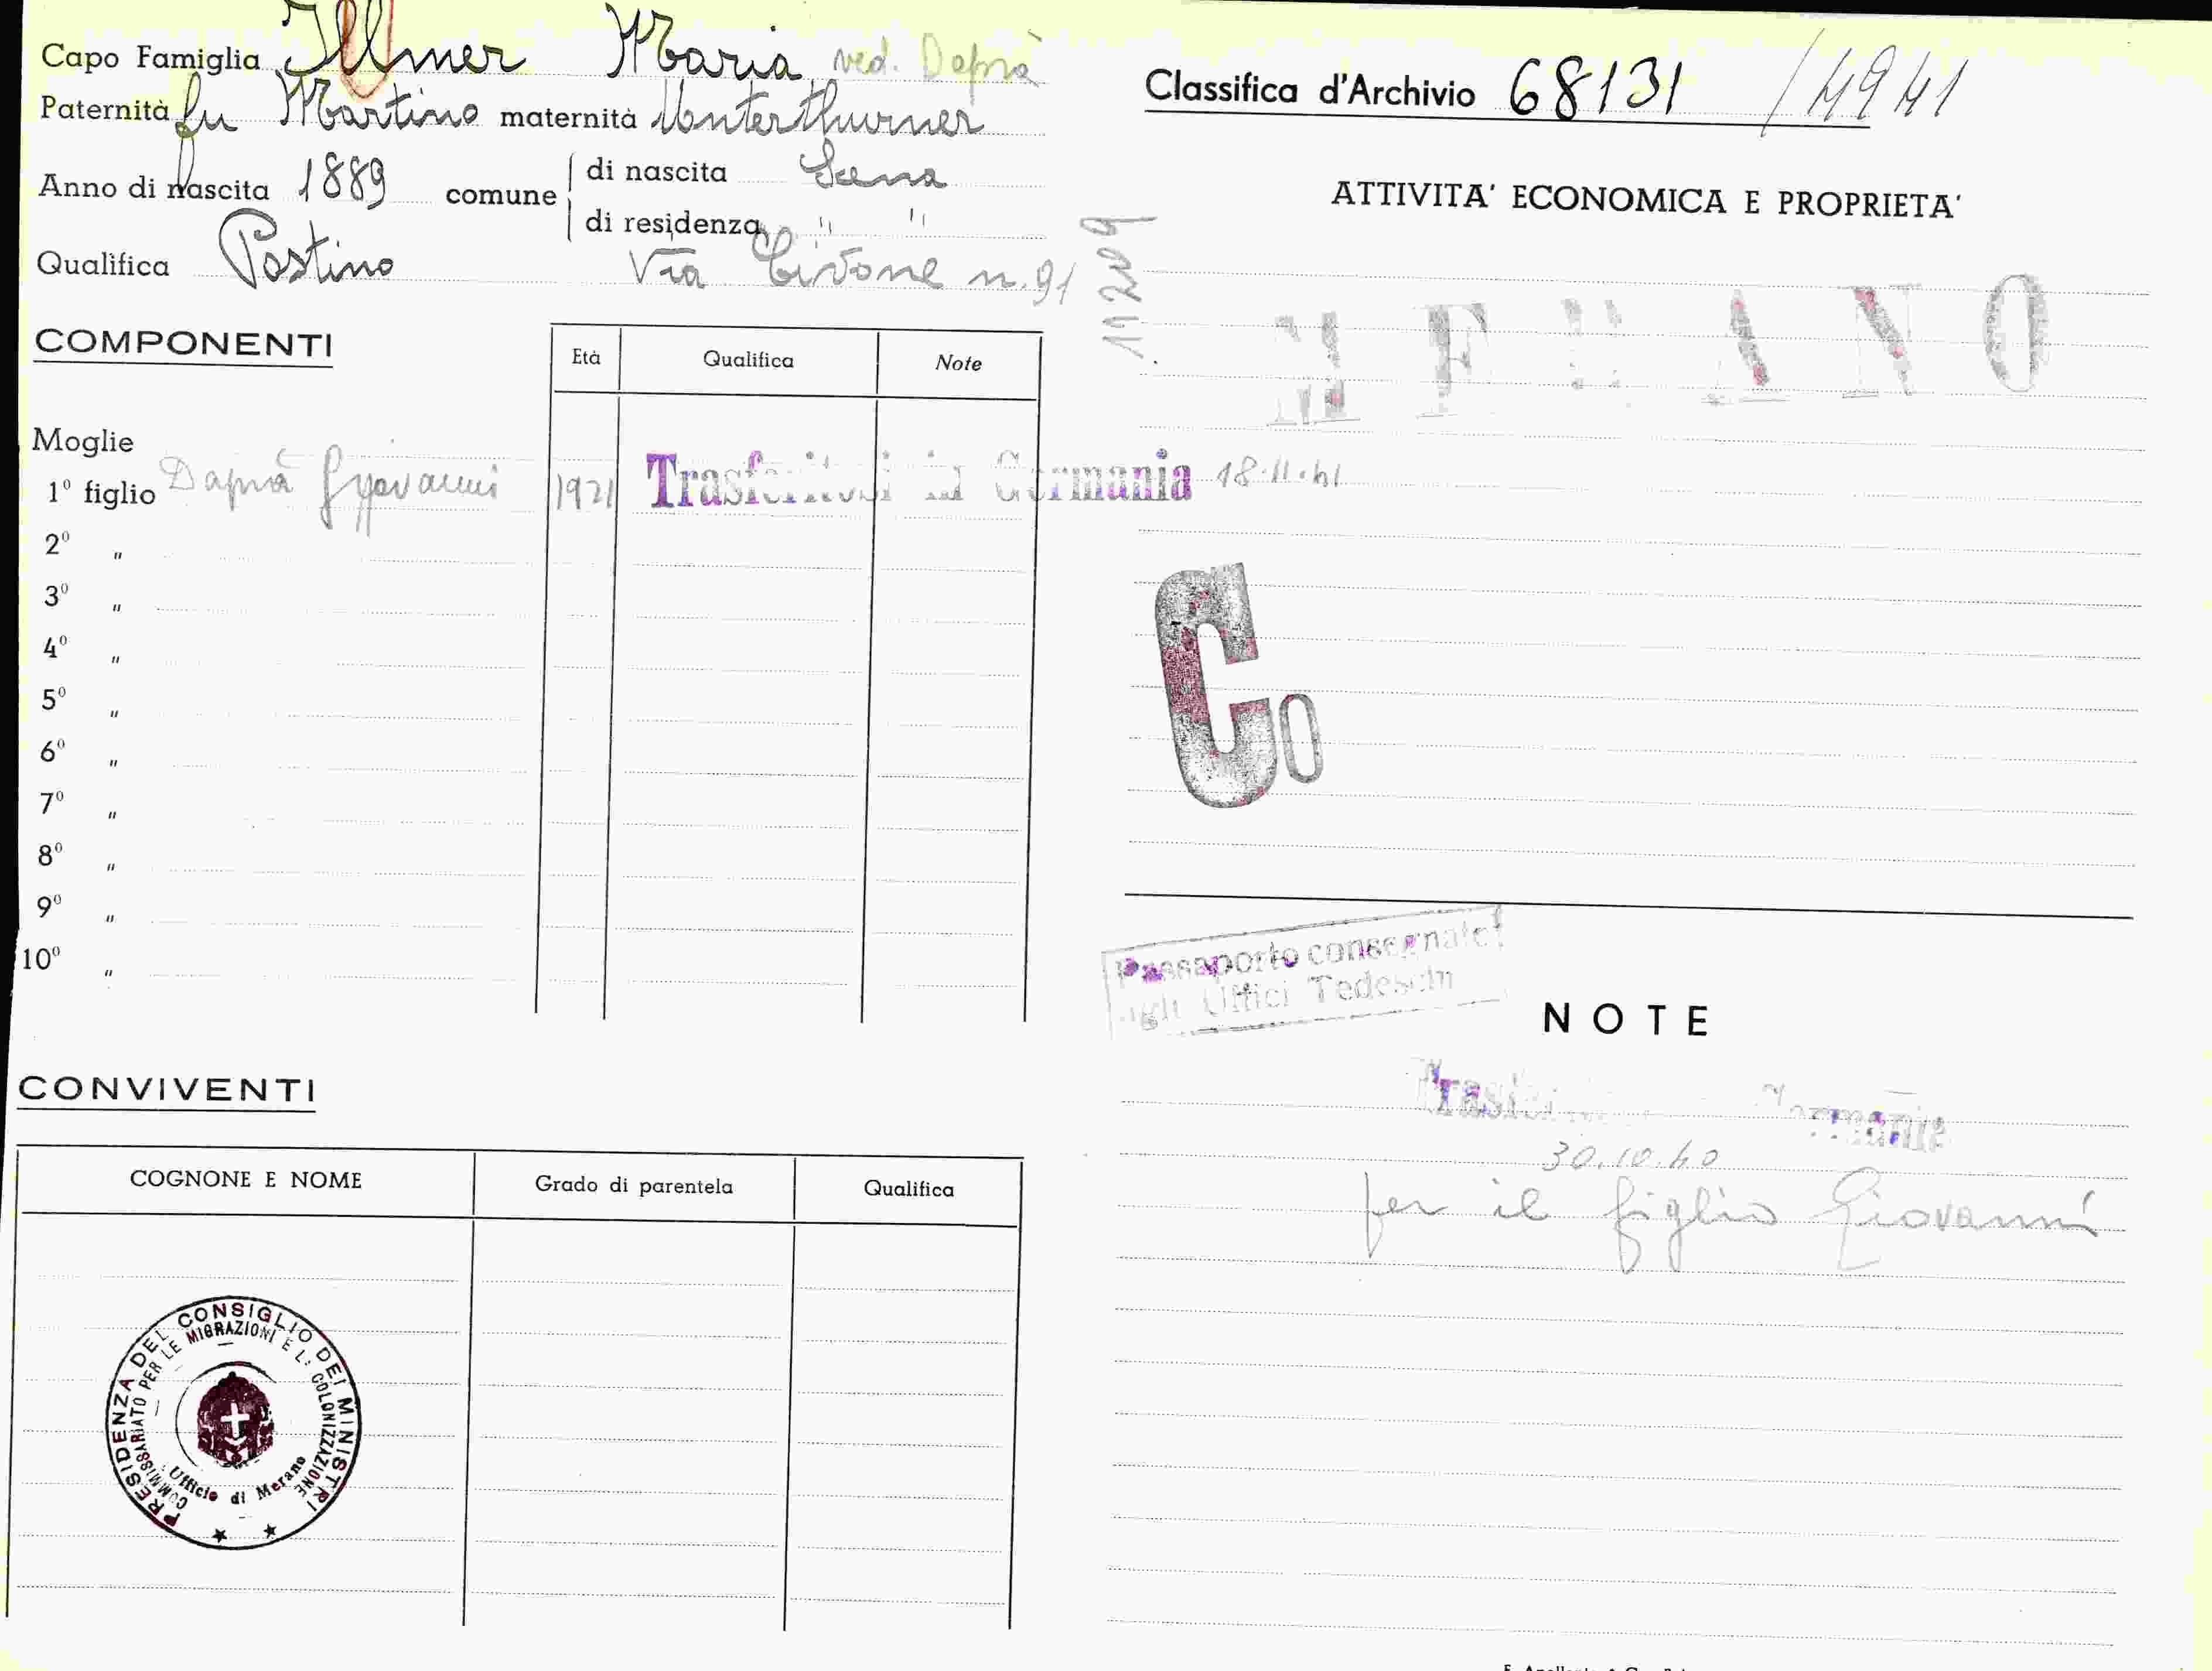 Capo Famiglia Illmer Maria ved. Daprà
Paternità fu Martino maternità Unterthurner
Anno di nascita 1889 comune
di nascita Scena
di residenza " "
Qualifica Postino Via n. 91
COMPONENTI
Età Qualifica Note
Moglie
1º figlio Daprà Giovanni 1921 Trasferitosi in Germania 18.11.41
2º "
3º "
4º "
5º "
6º "
7º "
8º "
9º "
10º "
CONVIVENTI
COGNONE E NOME Grado di parentela Qualifica
PRESIDENZA DEL CONSIGLIO DEI MINISTRI
COMMISSARIATO PER LE MIGRAZIONI E LA COLONIZZAZIONE
Ufficio di Merano
Classifica d'Archivio 68131 / 4941
ATTIVITA' ECONOMICA E PROPRIETA'
11209
MERANO
Co
Passaporto consegnato
agli Uffici Tedeschi
NOTE
Trasferitosi in Germania
30.10.40
per il figlio Giovanni